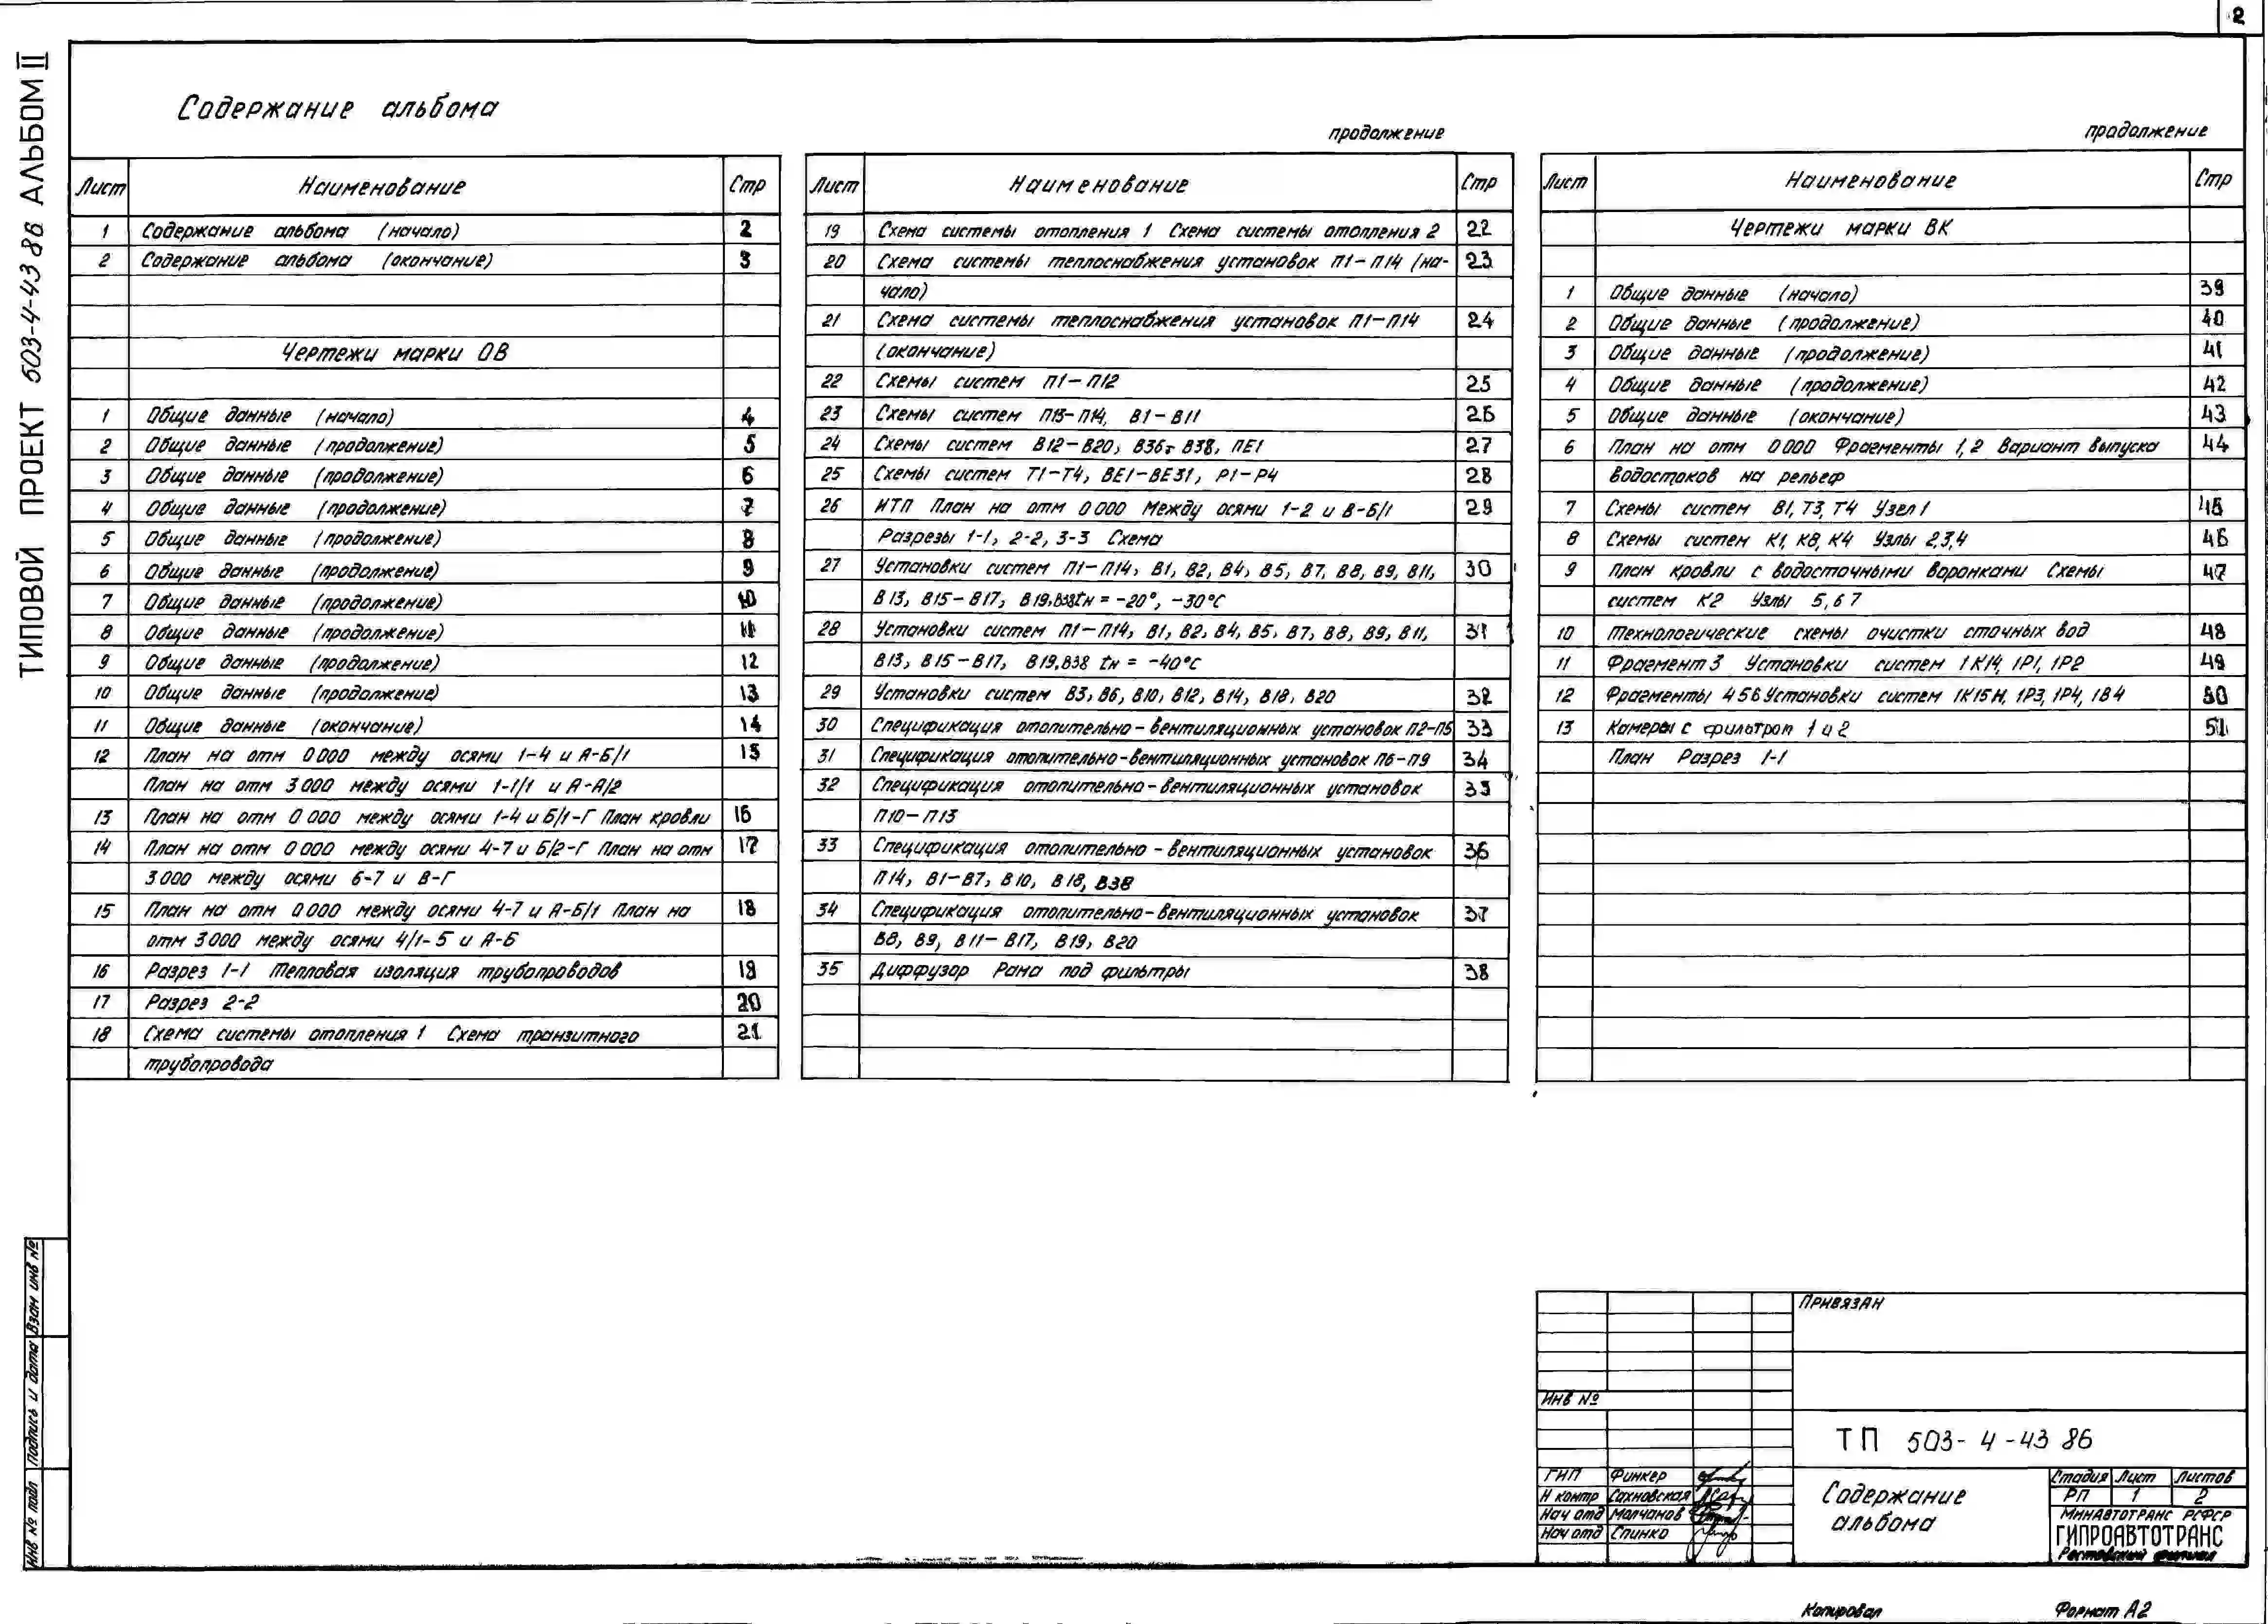 2
ТИПОВОЙ ПРОЕКТ 503-4-43 86 АЛЬБОМ II
Содержание альбома
Лист Наименование Стр
1 Содержание альбома (начало) 2
2 Содержание альбома (окончание) 3
Чертежи марки ОВ
1 Общие данные (начало) 4
2 Общие данные (продолжение) 5
3 Общие данные (продолжение) 6
4 Общие данные (продолжение) 7
5 Общие данные (продолжение) 8
6 Общие данные (продолжение) 9
7 Общие данные (продолжение) 10
8 Общие данные (продолжение) 11
9 Общие данные (продолжение) 12
10 Общие данные (продолжение) 13
11 Общие данные (окончание) 14
12 План на отм 0 000 между осями 1-4 и А-Б/1 15
План на отм 3 000 между осями 1-1/1 и А-А/2
13 План на отм 0 000 между осями 1-4 и Б/1-Г План кровли 16
14 План на отм 0 000 между осями 4-7 и Б/2-Г План на отм 17
3 000 между осями 6-7 и В-Г
15 План на отм 0 000 между осями 4-7 и А-Б/1 План на 18
отм 3 000 между осями 4/1-5 и А-Б
16 Разрез 1-1 Тепловая изоляция трубопроводов 19
17 Разрез 2-2 20
18 Схема системы отопления 1 Схема транзитного 21
трубопровода
продолжение
Лист Наименование Стр
19 Схема системы отопления 1 Схема системы отопления 2 22
20 Схема системы теплоснабжения установок П1-П14 (на- 23
чало)
21 Схема системы теплоснабжения установок П1-П14 24
(окончание)
22 Схемы систем П1-П12 25
23 Схемы систем П13-П14, В1-В11 26
24 Схемы систем В12-В20, В36, В38, ПЕ1 27
25 Схемы систем Т1-Т4, ВЕ1-ВЕ31, Р1-Р4 28
26 ИТП План на отм 0 000 Между осями 1-2 и В-Б/1 29
Разрезы 1-1, 2-2, 3-3 Схема
27 Установки систем П1-П14, В1, В2, В4, В5, В7, В8, В9, В11, 30
В13, В15-В17, В19, В38 tн = -20°, -30°С
28 Установки систем П1-П14, В1, В2, В4, В5, В7, В8, В9, В11, 31
В13, В15-В17, В19, В38 tн = -40°С
29 Установки систем В3, В6, В10, В12, В14, В18, В20 32
30 Спецификация отопительно-вентиляционных установок П2-П5 33
31 Спецификация отопительно-вентиляционных установок П6-П9 34
32 Спецификация отопительно-вентиляционных установок 35
П10-П13
33 Спецификация отопительно-вентиляционных установок 36
П14, В1-В7, В10, В18, В38
34 Спецификация отопительно-вентиляционных установок 37
В8, В9, В11-В17, В19, В20
35 Диффузор Рама под фильтры 38
продолжение
Лист Наименование Стр
Чертежи марки ВК
1 Общие данные (начало) 39
2 Общие данные (продолжение) 40
3 Общие данные (продолжение) 41
4 Общие данные (продолжение) 42
5 Общие данные (окончание) 43
6 План на отм 0 000 Фрагменты 1, 2 Вариант выпуска 44
водостоков на рельеф
7 Схемы систем В1, Т3, Т4 Узел 1 45
8 Схемы систем К1, К8, К4 Узлы 2,3,4 46
9 План кровли с водосточными воронками Схемы 47
систем К2 Узлы 5,6 7
10 Технологические схемы очистки сточных вод 48
11 Фрагмент 3 Установки систем 1К14, 1Р1, 1Р2 49
12 Фрагменты 4 5 6 Установки систем 1К15Н, 1Р3, 1Р4, 1В4 50
13 Камеры с фильтром 1 и 2 51
План Разрез 1-1
Взам инв №
Подпись и дата
Инв № подл
Привязан
Инв №
ТП 503-4-43 86
ГИП Финкер
Н контр Сахновская
Нач отд Молчанов
Нач отд Спинко
Содержание
альбома
Стадия Лист Листов
РП 1 2
Минавтотранс РСФСР
ГИПРОАВТОТРАНС
Ростовский филиал
Копировал Формат А2